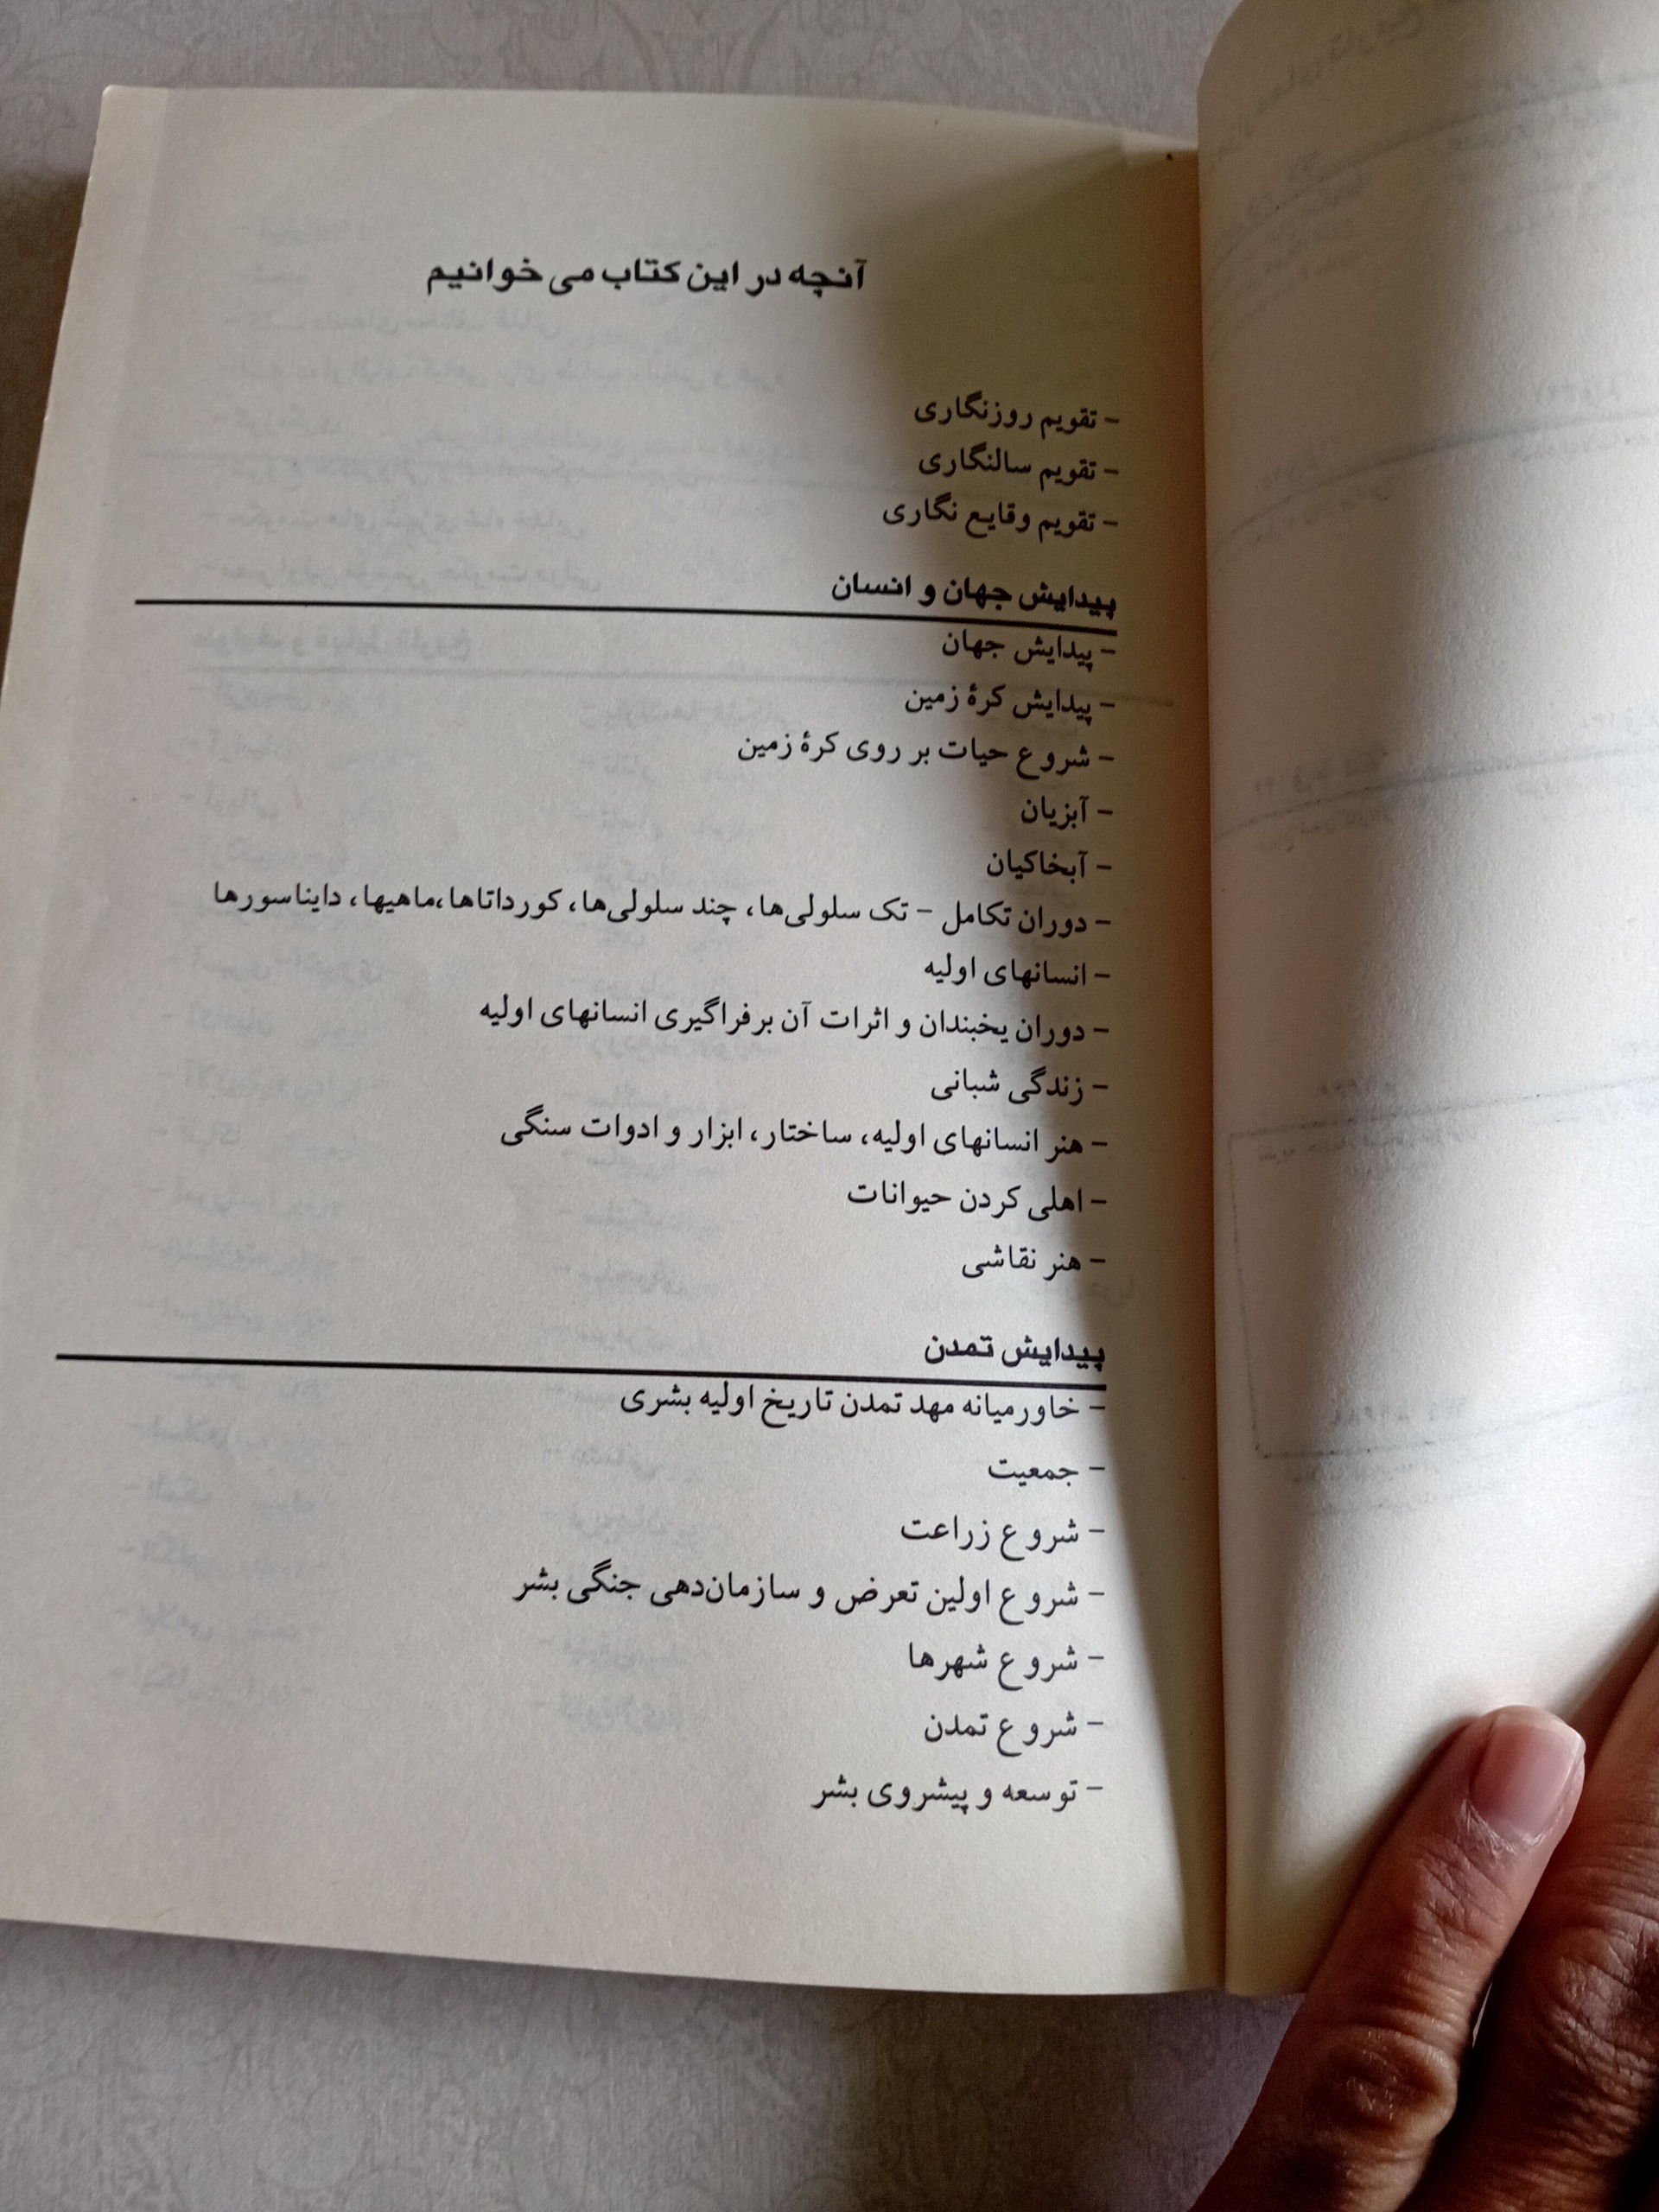 آنچه در این کتاب می خوانیم
- تقویم روزنگاری
- تقویم سالنگاری
- تقویم وقایع نگاری
پیدایش جهان و انسان
- پیدایش جهان
- پیدایش کرهٔ زمین
- شروع حیات بر روی کرهٔ زمین
- آبزیان
- آبخاکیان
- دوران تکامل - تک سلولی‌ها، چند سلولی‌ها، کورداتاها،ماهیها، دایناسورها
- انسانهای اولیه
- دوران یخبندان و اثرات آن برفراگیری انسانهای اولیه
- زندگی شبانی
- هنر انسانهای اولیه، ساختار، ابزار و ادوات سنگی
- اهلی کردن حیوانات
- هنر نقاشی
پیدایش تمدن
- خاورمیانه مهد تمدن تاریخ اولیه بشری
- جمعیت
- شروع زراعت
- شروع اولین تعرض و سازمان‌دهی جنگی بشر
- شروع شهرها
- شروع تمدن
- توسعه و پیشروی بشر